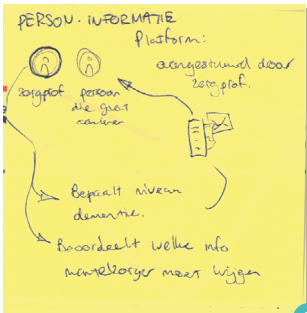 PERSON · INFORMATIE
Platform:
aangestuurd door
zorgprof.
zorgprof persoon
die gaat
Bepaalt niveau
dementie.
Beoordeelt welke info
mantelzorger moet krijgen